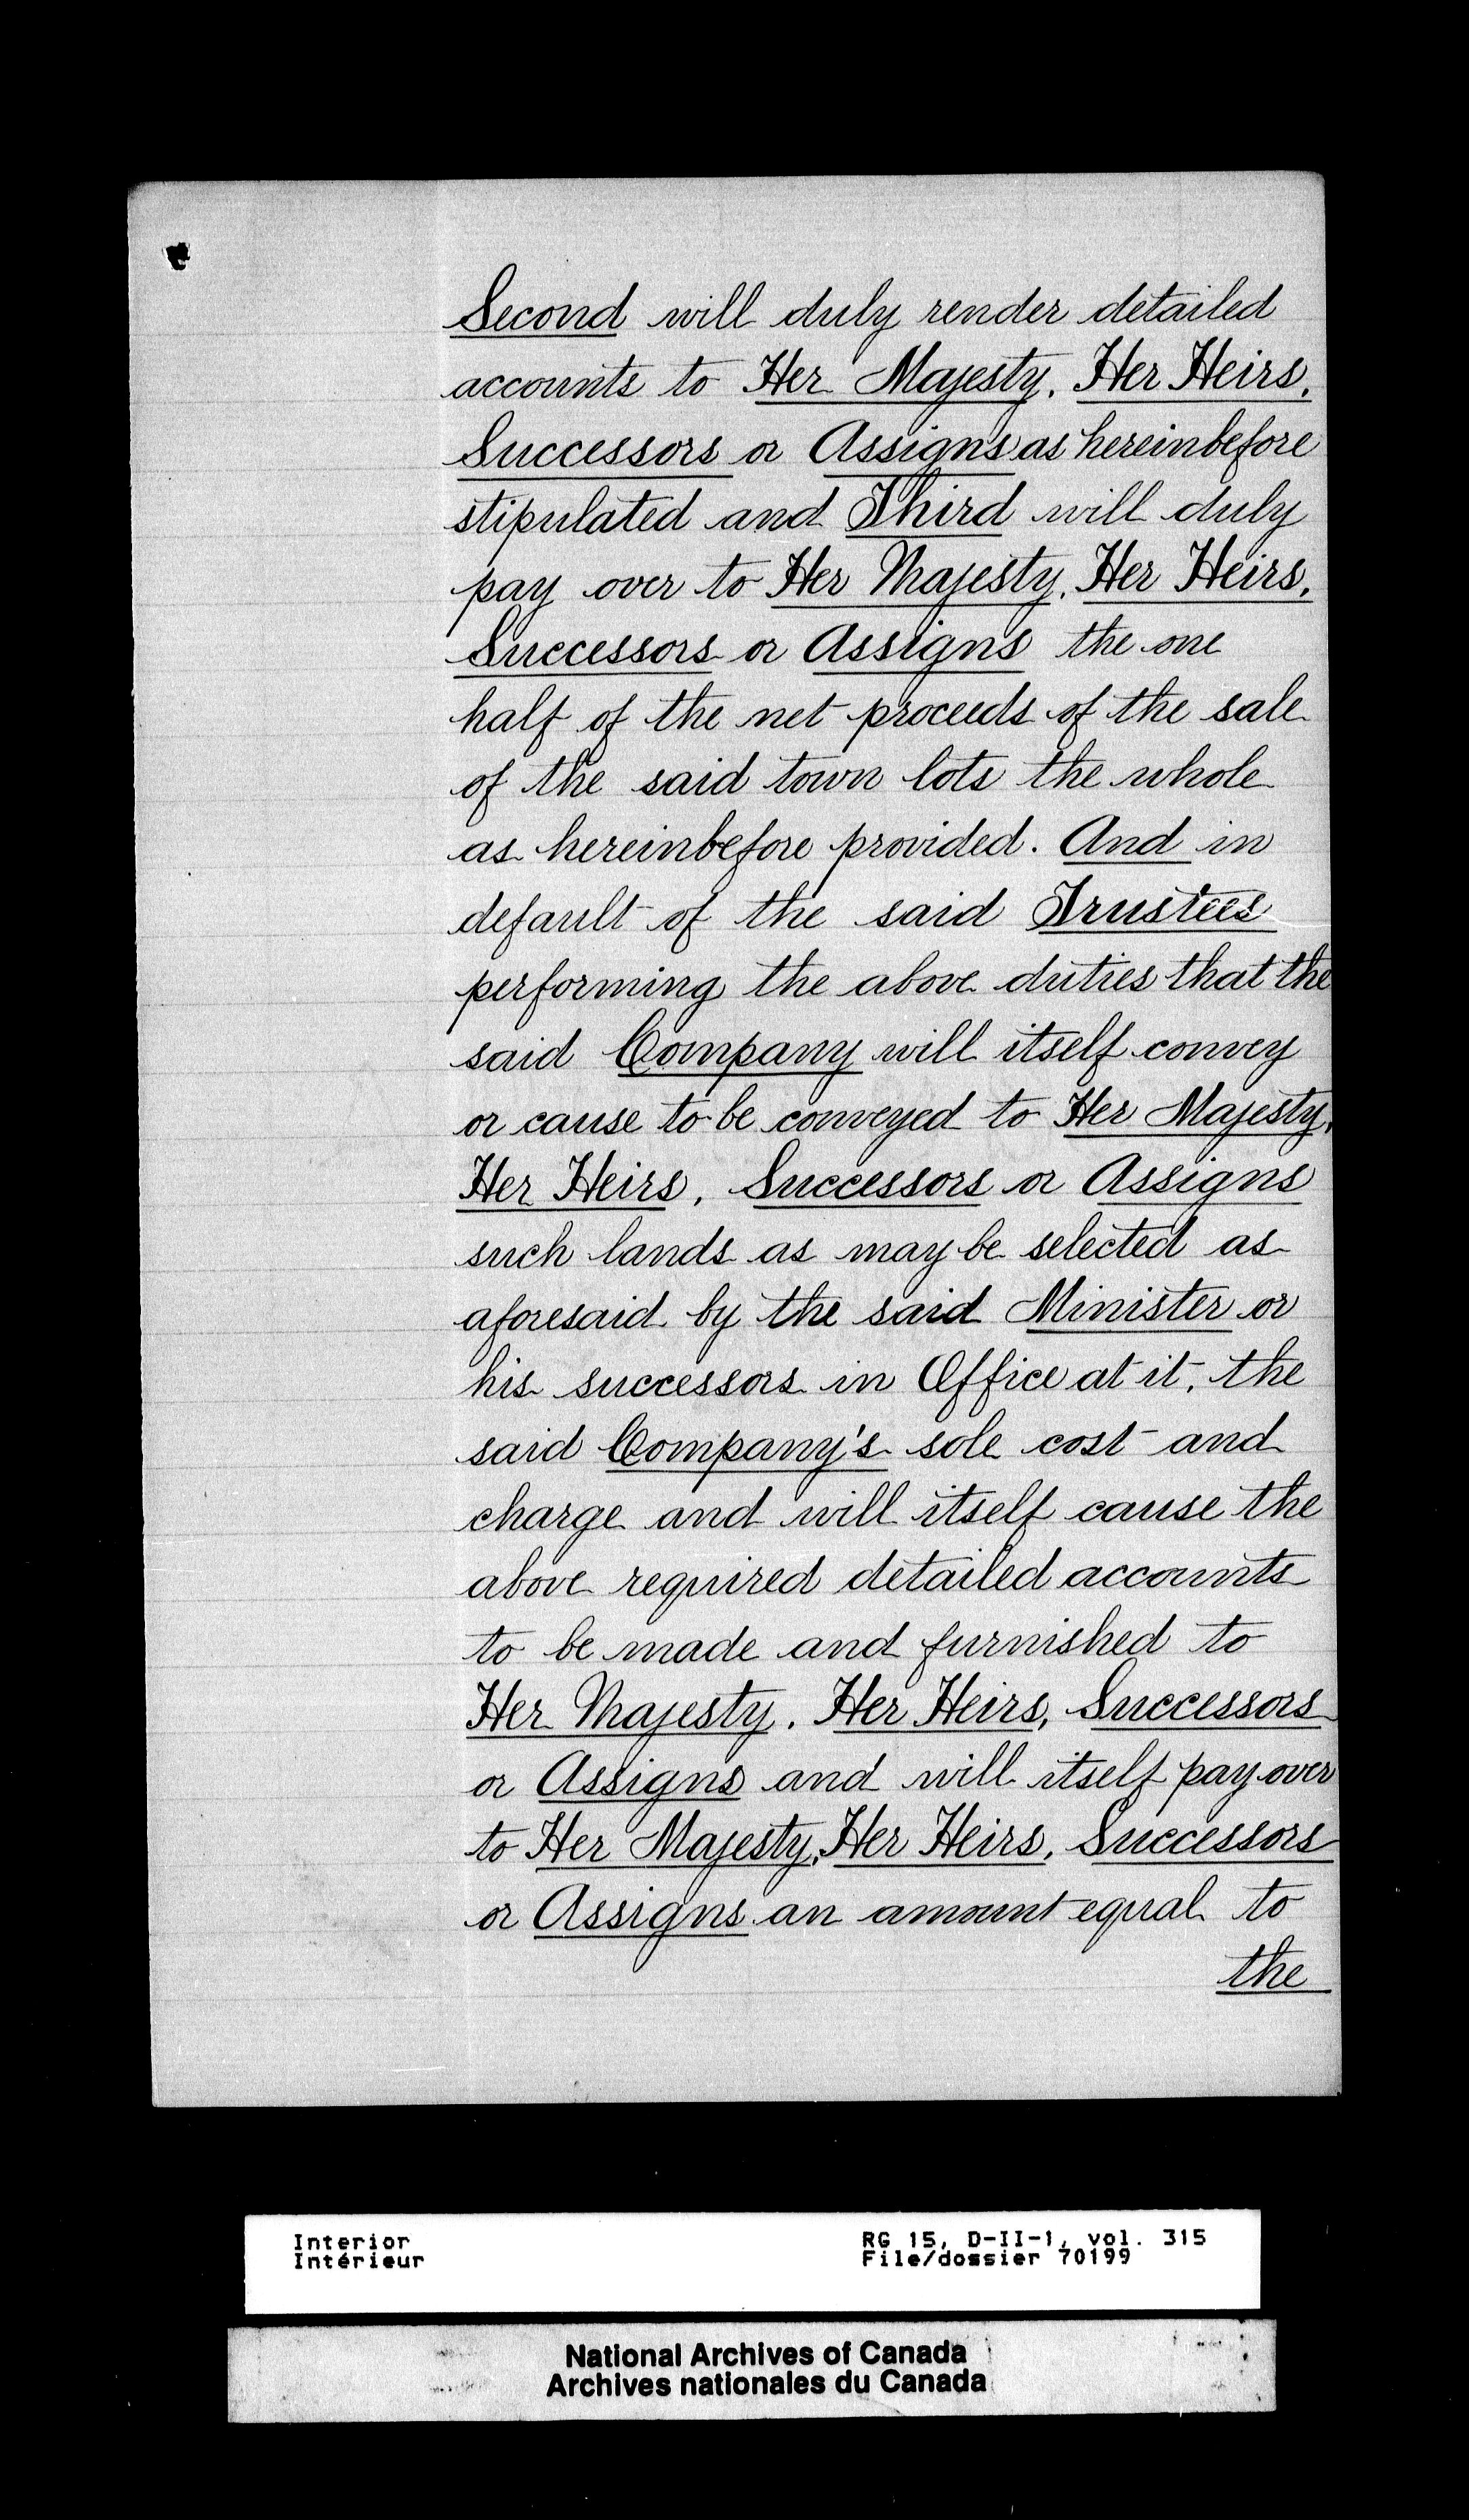 Second will duly render detailed
accounts to Her Majesty, Her Heirs,
Successors or Assigns as hereinbefore
stipulated and Third will duly
pay over to Her Majesty, Her Heirs,
Successors or Assigns the one
half of the net proceeds of the sale
of the said town lots the whole
as hereinbefore provided. And in
default of the said Trustees
performing the above duties that the
said Company will itself convey
or cause to be conveyed to Her Majesty,
Her Heirs, Successors or Assigns
such lands as may be selected as
aforesaid by the said Minister or
his successors in Office at it, the
said Company's sole cost and
charge and will itself cause the
above required detailed accounts
to be made and furnished to
Her Majesty, Her Heirs, Successors
or Assigns and will itself pay over
to Her Majesty, Her Heirs, Successors
or Assigns an amount equal to
the
Interior
Intérieur
RG 15, D-II-1, vol. 315
File/dossier 70199
National Archives of Canada
Archives nationales du Canada